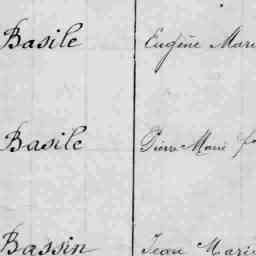 Basile Eugène Mari
Basile Pierre Marie
Bassin Jean Marie